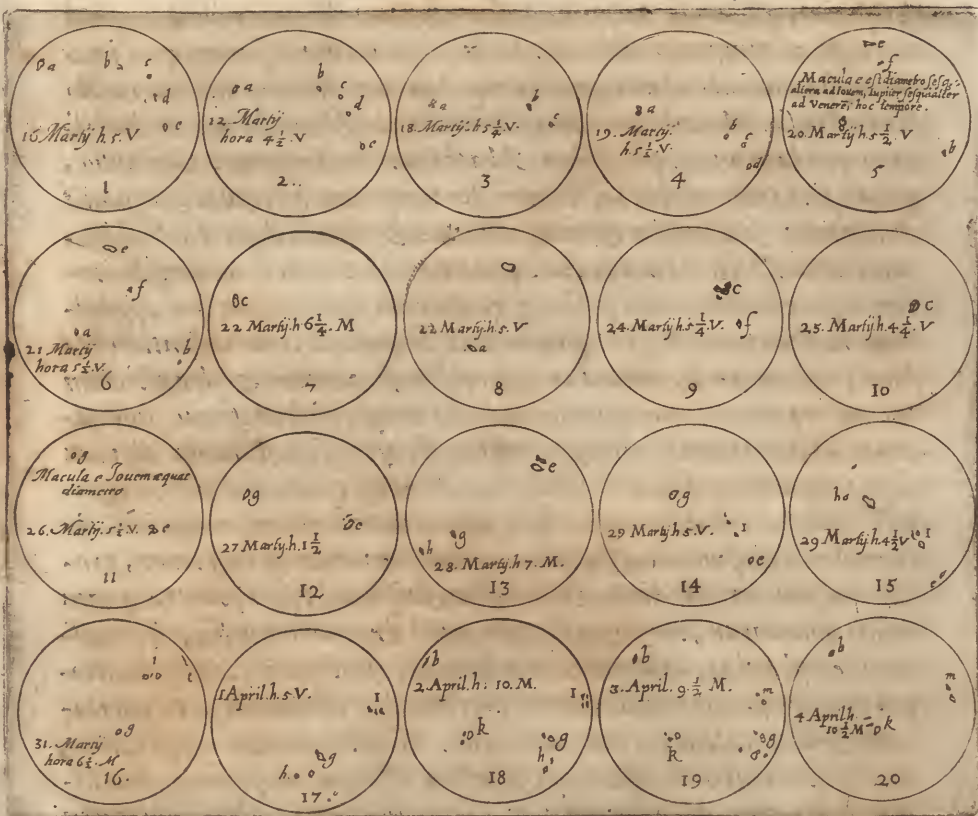 a b c
d
16 Martij h. 5. V e
1
a b c
d
12 Martij
hora 4 1/2 . V
e
2..
a b
18. Martij. h 5 1/4 V. c
3
a
19. Martij b
h. 5 1/2 . V. c
d
4
e
f
Macula e est diametro sesq=
altera ad Iouem, Iupiter sesquialter
ad Venerē, hoc tempore.
20. Martij h. 5 1/2 V
b
5
e
f
a
21 Martij b
hora 5 1/2 V.
6
c
22 Martij. h 6 1/4 . M
7
22 Martij h. 5. V
a
8
c
24. Martij h. 5 1/4 V. f
9
c
25. Martij h. 4 1/4 . V
10
g
Macula e Iouem æquat
diametro
26. Martij. 5 1/2 V. e
11
g
e
27 Martij. h. 1 1/2
12
e
h g
28. Martij h 7. M.
13
g
29 Martij h. 5. V. I
e
14
h
29 Martij. h. 4 1/2 V I
e
15
i
e
g
31. Martij
hora 6 1/2 . M
16.
1 April. h. 5 V. I
g
h.
17.
b
2. April. h: 10. M. I
k
h g
18
b
3. April. 9. 1/2 M. m
k g
19
b
m
4 April h k
10 1/2 M
20